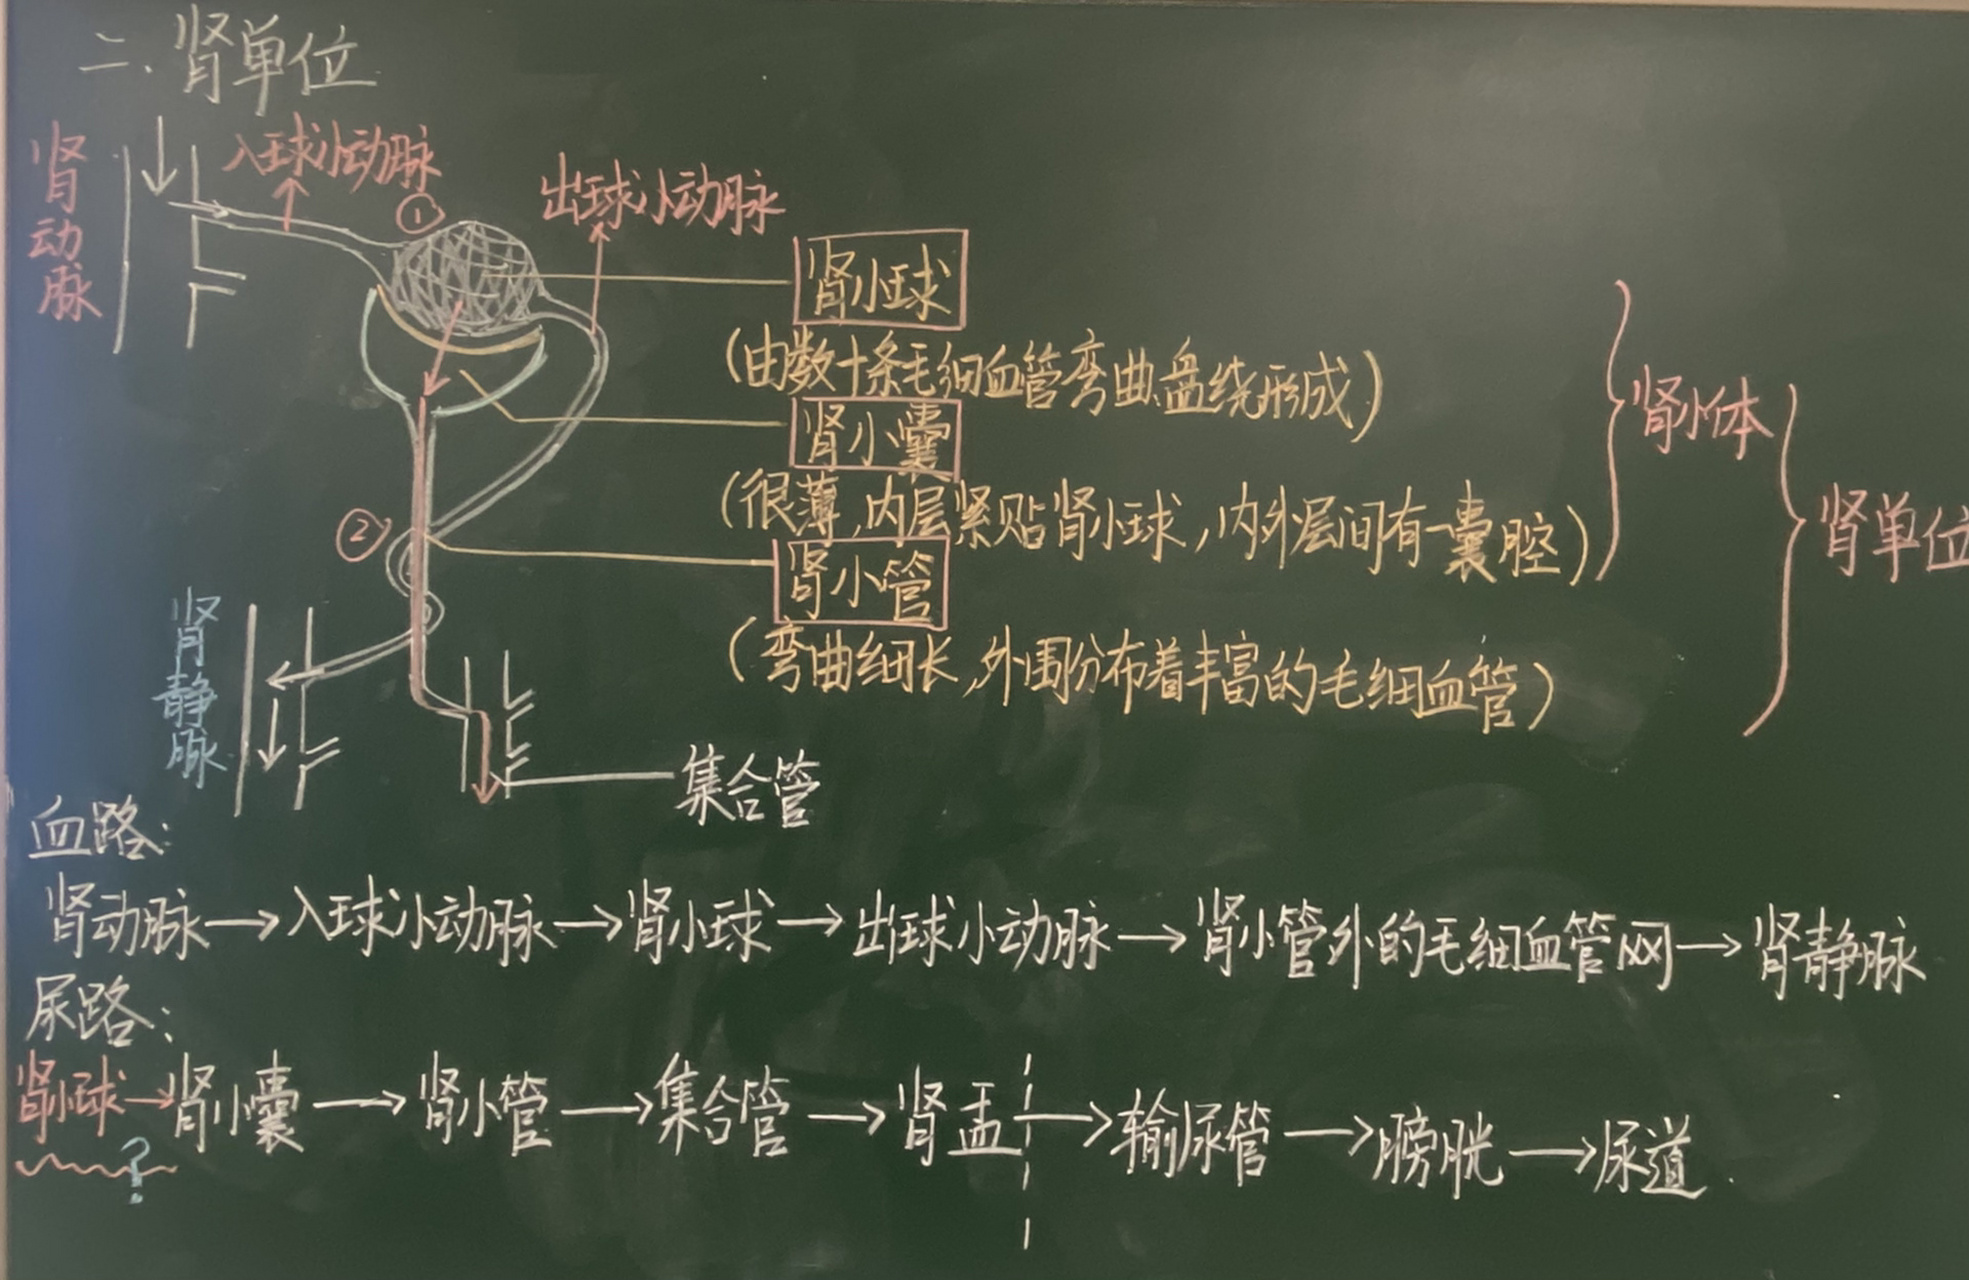 二、肾单位
肾动脉
入球小动脉
①
出球小动脉
肾小球
(由数十条毛细血管弯曲盘绕形成)
肾小囊
(很薄,内层紧贴肾小球,内外层间有一囊腔)
肾小体
肾单位
②
肾小管
(弯曲细长,外围分布着丰富的毛细血管)
肾静脉
集合管
血路:
肾动脉→入球小动脉→肾小球→出球小动脉→肾小管外的毛细血管网→肾静脉
尿路:
肾小球→肾小囊→肾小管→集合管→肾盂→输尿管→膀胱→尿道.
?